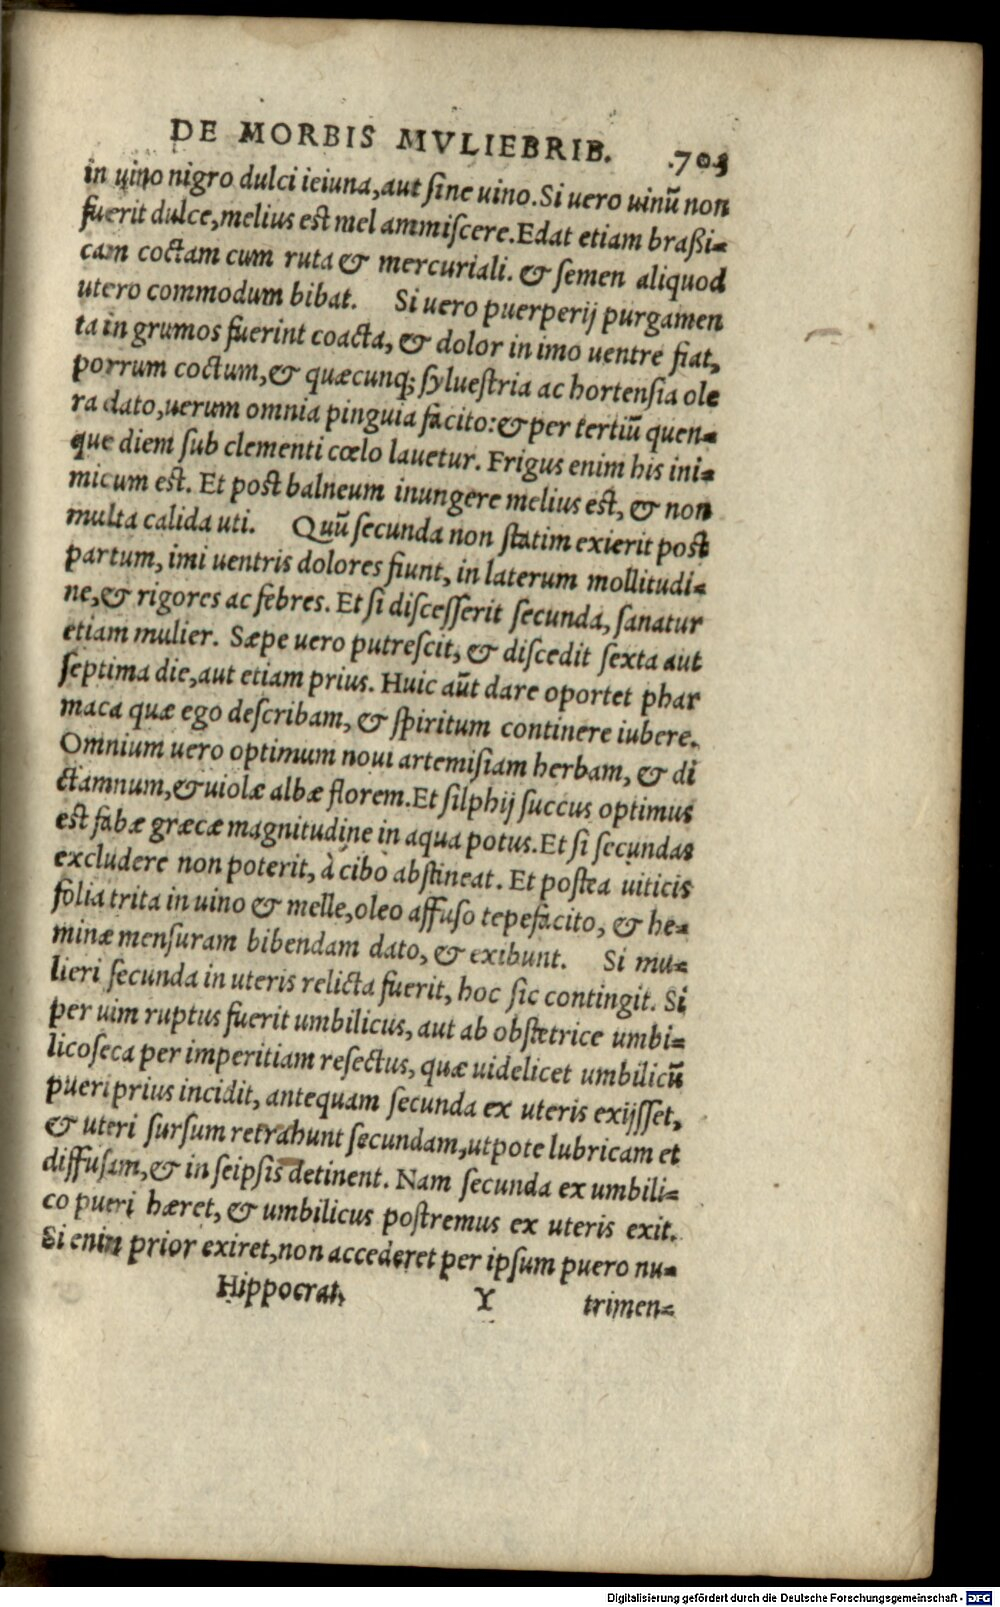 DE MORBIS MVLIEBRIB. .703
in uino nigro dulci ieiuna, aut sine uino. Si uero uinū non
fuerit dulce, melius est mel ammiscere. Edat etiam braßi=
cam coctam cum ruta & mercuriali. & semen aliquod
utero commodum bibat. Si uero puerperij purgamen
ta in grumos fuerint coacta, & dolor in imo uentre fiat,
porrum coctum, & quæcunq; syluestria ac hortensia ole
ra dato, uerum omnia pinguia facito: & per tertiū quen=
que diem sub clementi cœlo lauetur. Frigus enim his ini=
micum est. Et post balneum inungere melius est, & non
multa calida uti. Quū secunda non statim exierit post
partum, imi uentris dolores fiunt, in laterum mollitudi=
ne, & rigores ac febres. Et si discesserit secunda, sanatur
etiam mulier. Sæpe uero putrescit, & discedit sexta aut
septima die, aut etiam prius. Huic aūt dare oportet phar
maca quæ ego describam, & spiritum continere iubere.
Omnium uero optimum noui artemisiam herbam, & di
ctamnum, & uiolæ albæ florem. Et silphij succus optimus
est fabæ græcæ magnitudine in aqua potus. Et si secundas
excludere non poterit, à cibo abstineat. Et postea uiticis
folia trita in uino & melle, oleo affuso tepefacito, & he=
minæ mensuram bibendam dato, & exibunt. Si mu=
lieri secunda in uteris relicta fuerit, hoc sic contingit. Si
per uim ruptus fuerit umbilicus, aut ab obstetrice umbi=
licoseca per imperitiam resectus, quæ uidelicet umbilicū
pueri prius incidit, antequam secunda ex uteris exijsset,
& uteri sursum retrahunt secundam, utpote lubricam et
diffusam, & in seipsis detinent. Nam secunda ex umbili=
co pueri hæret, & umbilicus postremus ex uteris exit.
Si enim prior exiret, non accederet per ipsum puero nu=
Hippocrat. Y trimen=
Digitalisierung gefördert durch die Deutsche Forschungsgemeinschaft - DFG